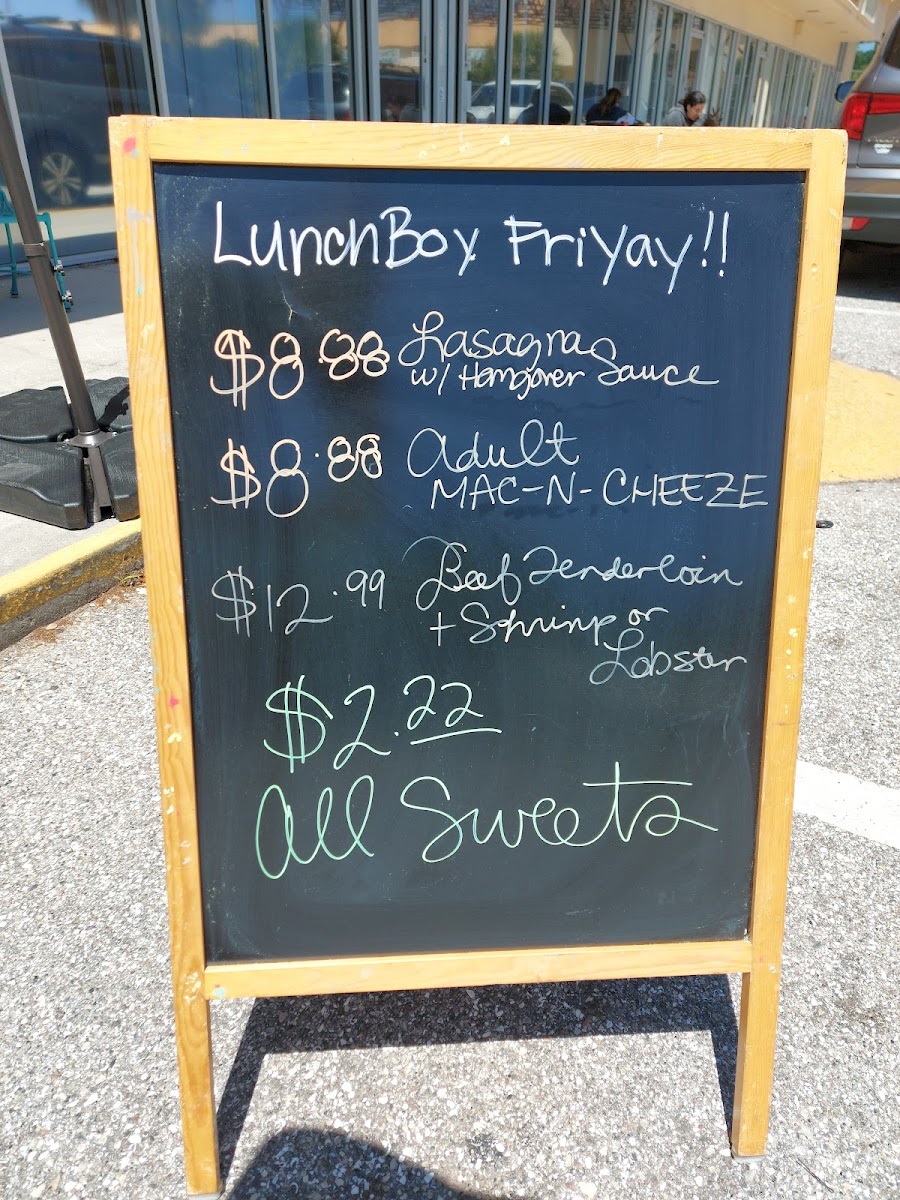 LunchBoy FriYay!!
$8.88 Lasagna
w/ Hangover Sauce
$8.88 Adult
MAC-N-CHEEZE
$12.99 Beef Tenderloin
+ Shrimp or
Lobster
$2.22
All Sweets